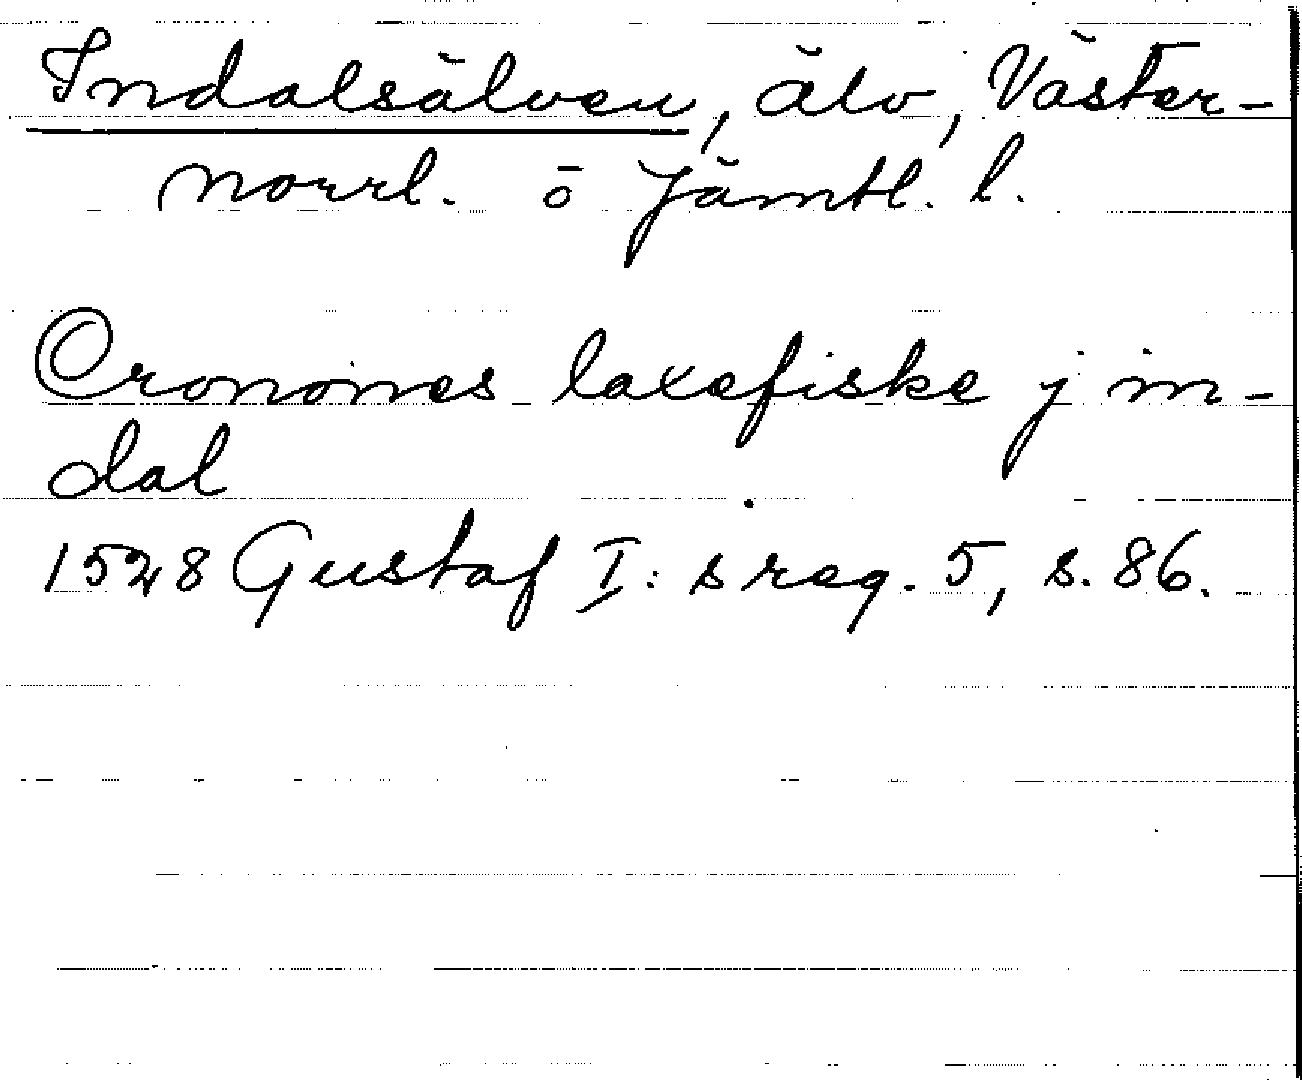 Indalsälven, älv, Väster-
norrl. ö Jämtl. l.
Cronones laxefiske j in-
dal
1528 Gustaf I: s reg. 5, s. 86.